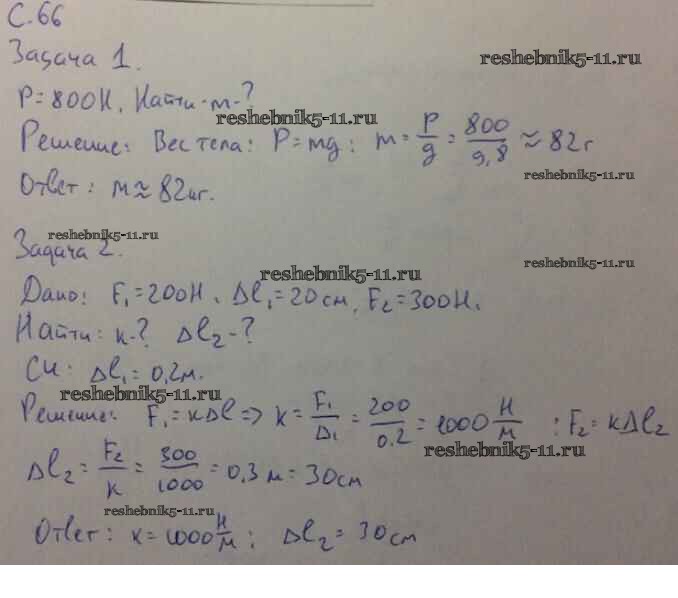 С.66
Задача 1.
reshebnik5-11.ru
P=800Н. Найти - m-?
reshebnik5-11.ru
Решение: Вес тела: P=mg; m = P/g = 800/9,8 ≈ 82г
reshebnik5-11.ru
Ответ: m≈82кг.
reshebnik5-11.ru
Задача 2.
reshebnik5-11.ru
reshebnik5-11.ru
Дано: F₁=200Н. Δl₁=20см, F₂=300Н.
Найти: k-? Δl₂-?
СИ: Δl₁=0,2м.
reshebnik5-11.ru
Решение: F₁=kΔl => k= F₁/Δ₁ = 200/0.2 = 1000 Н/м ; F₂=kΔl₂
reshebnik5-11.ru
Δl₂= F₂/k = 300/1000 = 0,3м=30см
reshebnik5-11.ru
Ответ: k=1000 Н/м; Δl₂=30см